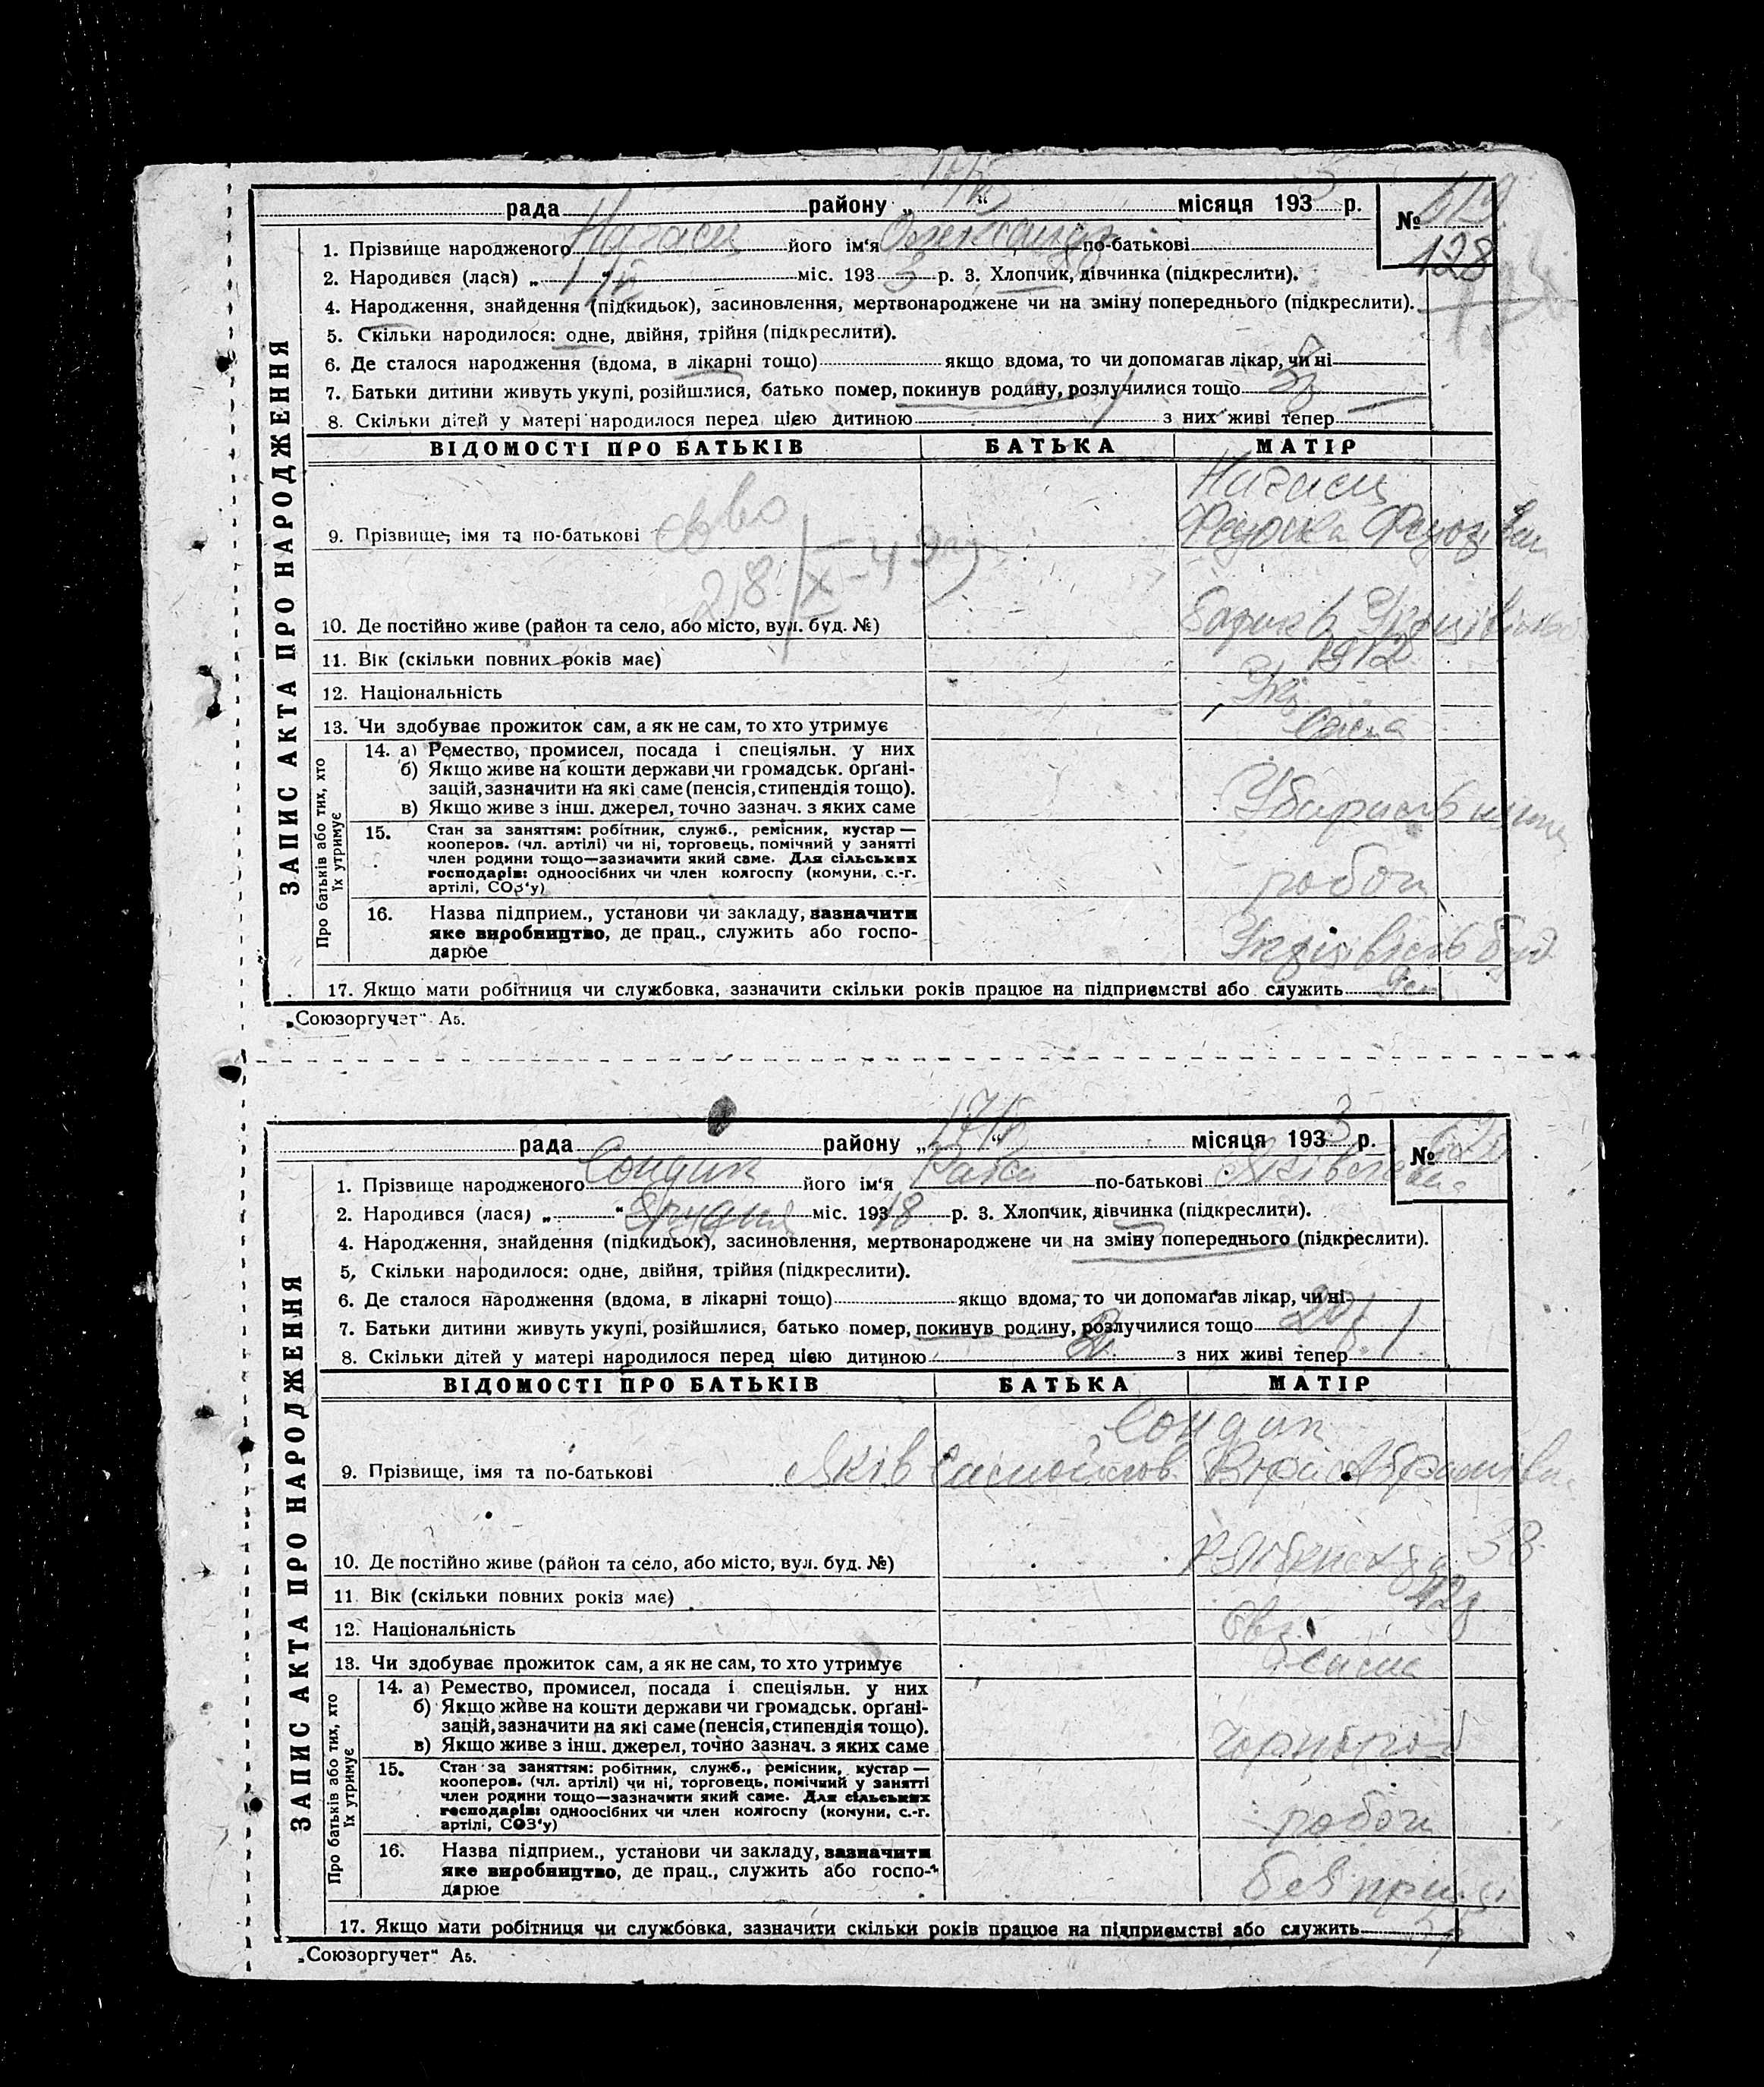 рада района „ “ місяця 1933 р. № 619
128
1. Прізвище народженого його ім‘я Олександр по-батькові
2. Народився (лася) „ “ міс. 1933 р. 3. Хлопчик, дівчинка (підкреслити).
4. Народження, знайдення (підкидьок), засиновлення, мертвонароджене чи на зміну попереднього (підкреслити).
5. Скільки народилося: одне, двійня, трійня (підкреслити).
6. Де сталося народження (вдома, в лікарні тощо) якщо вдома, то чи допомагав лікар, чи ні
7. Батьки дитини живуть укупі, розійшлися, батько помер, покинув родину, розлучилися тощо
8. Скільки дітей у матері народилося перед цією дитиною з них живі тепер
ЗАПИС АКТА ПРО НАРОДЖЕННЯ
ВІДОМОСТІ ПРО БАТЬКІВ БАТЬКА МАТІР
9. Прізвище, імя та по-батькові
28/X-49
10. Де постійно живе (район та село, або місто, вул. буд. №)
11. Вік (скільки повних років має) 1912
12. Національність Укр
13. Чи здобуває прожиток сам, а як не сам, то хто утримує сама
Про батьків або тих, хто їх утримує
14. а) Ремество, промисел, посада і спеціяльн. у них
б) Якщо живе на кошти держави чи громадськ. орґані-
зацій, зазначити на які саме (пенсія, стипендія тощо).
в) Якщо живе з інш. джерел, точно зазнач. з яких саме
15. Стан за заняттям: робітник, служб., ремісник, кустар —
кооперов. (чл. артілі) чи ні, торговець, помічний у занятті
член родини тощо—зазначити який саме. Для сільських
господарів: одноосібних чи член колгоспу (комуни, с.-г.
артілі, СОЗ‘у) робоч
16. Назва підприєм., установи чи закладу, зазначити
яке виробництво, де прац., служить або госпо-
дарює
17. Якщо мати робітниця чи службовка, зазначити скільки років працює на підприємстві або служить
„Союзоргучет“ А5.
рада району „ “ місяця 1933 р. № 620
1. Прізвище народженого його ім‘я по-батькові Яківлевна
2. Народився (лася) „ “ грудня міс. 1918 р. 3. Хлопчик, дівчинка (підкреслити).
4. Народження, знайдення (підкидьок), засиновлення, мертвонароджене чи на зміну попереднього (підкреслити).
5. Скільки народилося: одне, двійня, трійня (підкреслити).
6. Де сталося народження (вдома, в лікарні тощо) якщо вдома, то чи допомагав лікар, чи ні
7. Батьки дитини живуть укупі, розійшлися, батько помер, покинув родину, розлучилися тощо
8. Скільки дітей у матері народилося перед цією дитиною з них живі тепер
ЗАПИС АКТА ПРО НАРОДЖЕННЯ
ВІДОМОСТІ ПРО БАТЬКІВ БАТЬКА МАТІР
9. Прізвище, імя та по-батькові Яків
10. Де постійно живе (район та село, або місто, вул. буд. №) 38
11 Вік (скільки повних років має) 42
12. Національність Євр
13. Чи здобуває прожиток сам, а як не сам, то хто утримує сама
Про батьків або тих, хто їх утримує
14. а) Ремество, промисел, посада і спеціяльн. у них
б) Якщо живе на кошти держави чи громадськ. орґані-
зацій, зазначити на які саме (пенсія, стипендія тощо).
в) Якщо живе з інш. джерел, точно зазнач. з яких саме
15. Стан за заняттям: робітник, служб., ремісник, кустар —
кооперов. (чл. артілі) чи ні, торговець, помічний у занятті
член родини тощо—зазначити який саме. Для сільських
господарів: одноосібних чи член колгоспу (комуни, с.-г.
артілі, СОЗ‘у) робоч
16. Назва підприєм., установи чи закладу, зазначити
яке виробництво, де прац., служить або госпо-
дарює без прац.
17. Якщо мати робітниця чи службовка, зазначити скільки років працює на підприємстві або служить
„Союзоргучет“ А5.